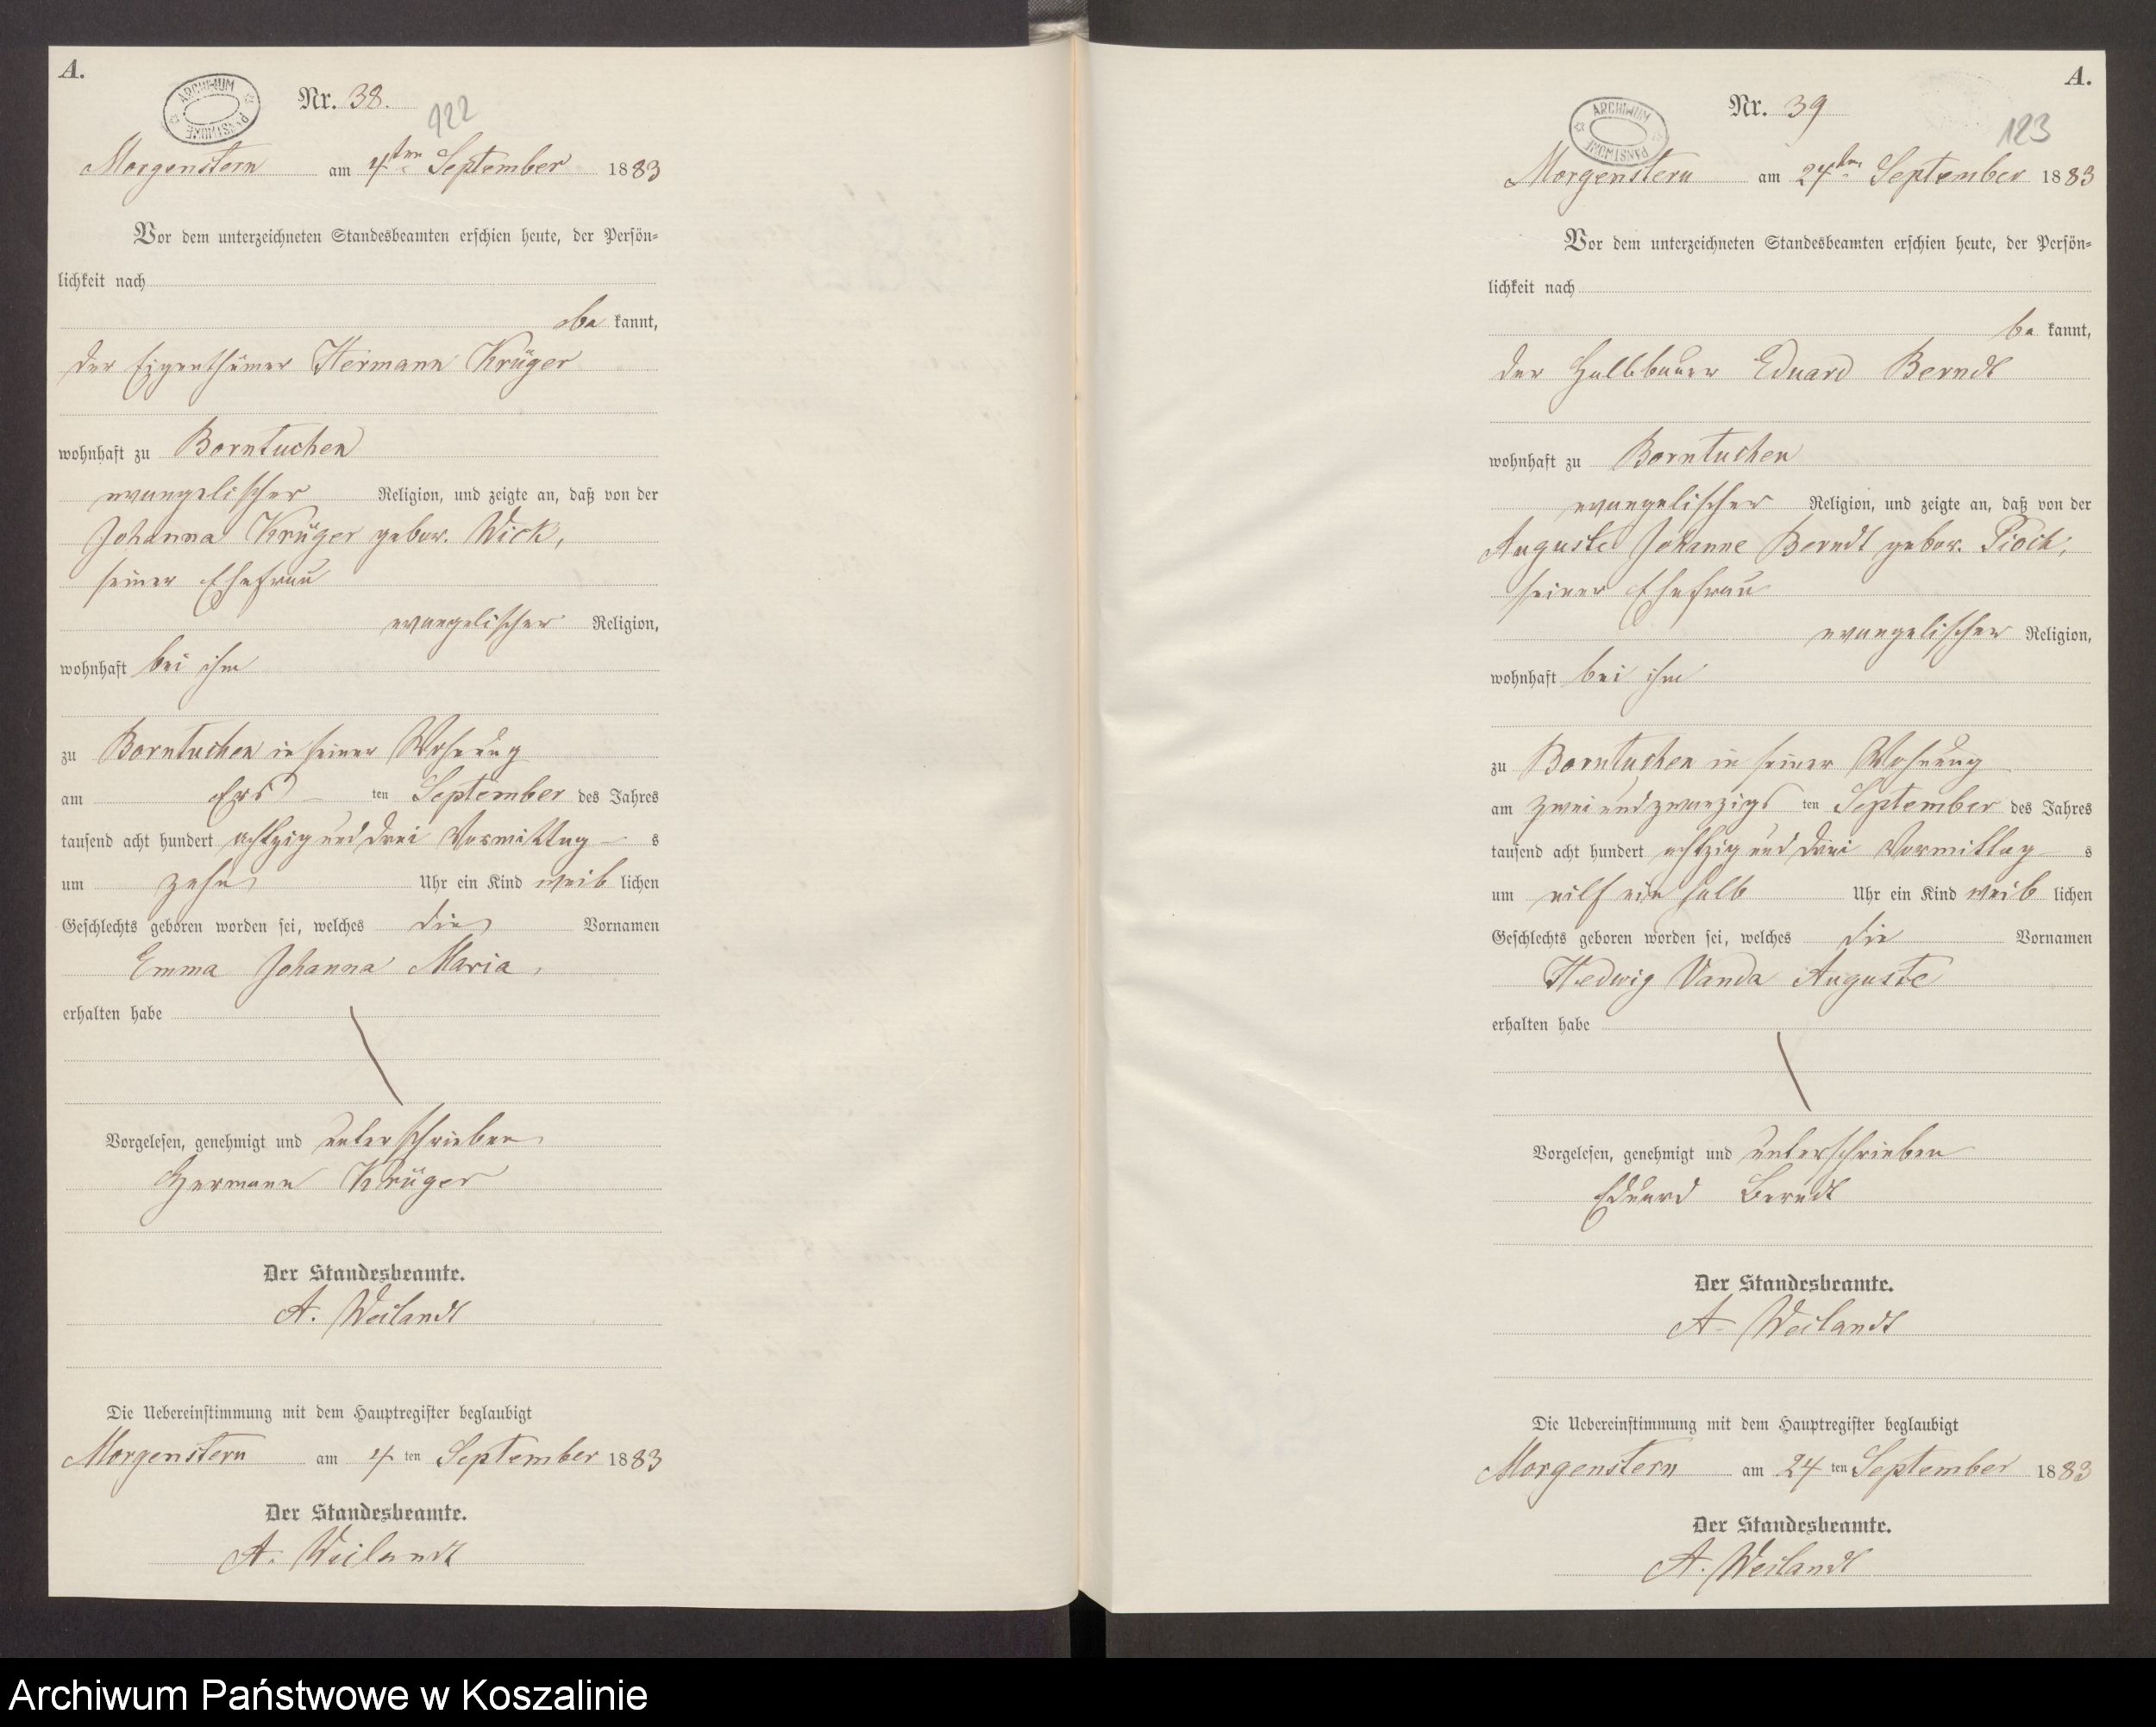 A.
ARCHIWUM PAŃSTWOWE
Nr. 38.
122
Morgenstern am 4ten September 1883
Vor dem unterzeichneten Standesbeamten erschien heute, der Persön-
lichkeit nach
be kannt,
der Eigenthümer Hermann Krüger
wohnhaft zu Borntuchen
evangelischer Religion, und zeigte an, daß von der
Johanna Krüger gebor. Wick,
seiner Ehefrau
evangelischer Religion,
wohnhaft bei ihm
zu Borntuchen in seiner Wohnung
am Erst ten September des Jahres
tausend acht hundert achtzig und drei Vormittag s
um zehn Uhr ein Kind weib lichen
Geschlechts geboren worden sei, welches die Vornamen
Emma Johanna Maria,
erhalten habe
Vorgelesen, genehmigt und unterschrieben
Hermann Krüger
Der Standesbeamte.
A. Weilandt
Die Uebereinstimmung mit dem Hauptregister beglaubigt
Morgenstern am 4 ten September 1883
Der Standesbeamte.
A. Weilandt
A.
ARCHIWUM PAŃSTWOWE
Nr. 39
123
Morgenstern am 24ten September 1883
Vor dem unterzeichneten Standesbeamten erschien heute, der Persön-
lichkeit nach
be kannt,
der Halbbauer Eduard Berndt
wohnhaft zu Borntuchen
evangelischer Religion, und zeigte an, daß von der
Auguste Johanne Berndt gebor. Pioch,
seiner Ehefrau
evangelischer Religion,
wohnhaft bei ihm
zu Borntuchen in seiner Wohnung
am zwei und zwanzigs ten September des Jahres
tausend acht hundert achtzig und drei Vormittag s
um eilf ein halb Uhr ein Kind weib lichen
Geschlechts geboren worden sei, welches die Vornamen
Hedwig Vanda Auguste
erhalten habe
Vorgelesen, genehmigt und unterschrieben
Eduard Berndt
Der Standesbeamte.
A. Weilandt
Die Uebereinstimmung mit dem Hauptregister beglaubigt
Morgenstern am 24 ten September 1883
Der Standesbeamte.
A. Weilandt
Archiwum Państwowe w Koszalinie